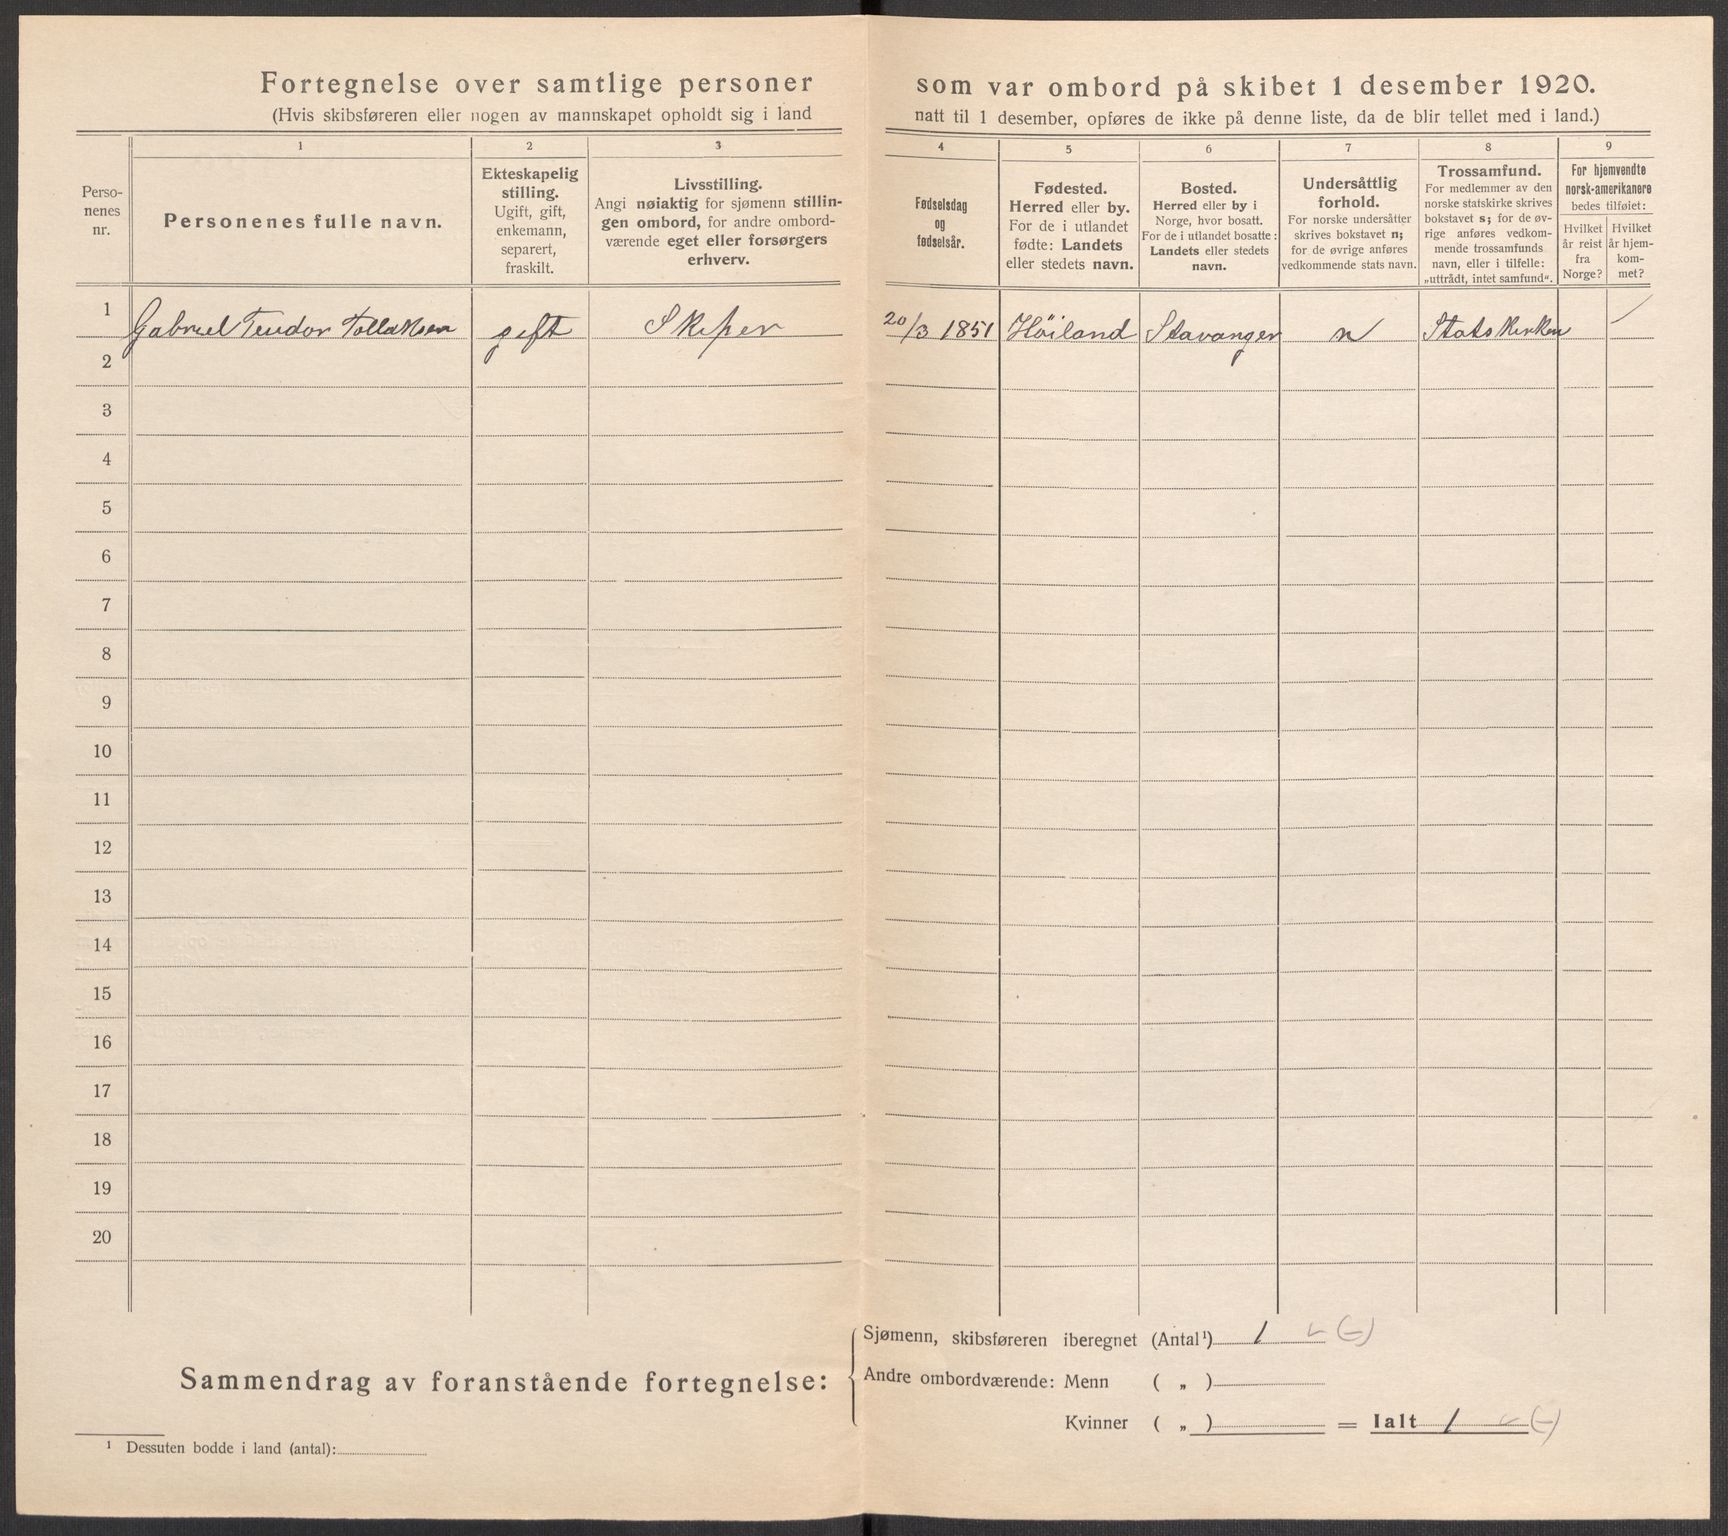 Fortegnelse over samtlige personer som var ombord på skibet 1 desember 1920.
(Hvis skibsføreren eller nogen av mannskapet opholdt sig i land natt til 1 desember, opføres de ikke på denne liste, da de blir tellet med i land.)
Perso-
nenes
nr.
1
Personenes fulle navn.
2
Ekteskapelig
stilling.
Ugift, gift,
enkemann,
separert,
fraskilt.
3
Livsstilling.
Angi nøiaktig for sjømenn stillin-
gen ombord, for andre ombord-
værende eget eller forsørgers
erhverv.
4
Fødselsdag
og
fødselsår.
5
Fødested.
Herred eller by.
For de i utlandet
fødte: Landets
eller stedets navn.
6
Bosted.
Herred eller by i
Norge, hvor bosatt.
For de i utlandet bosatte:
Landets eller stedets
navn.
7
Undersåttlig
forhold.
For norske undersåtter
skrives bokstavet n;
for de øvrige anføres
vedkommende stats navn.
8
Trossamfund.
For medlemmer av den
norske statskirke skrives
bokstavet s; for de øv-
rige anføres vedkom-
mende trossamfunds
navn, eller i tilfelle:
„uttrådt, intet samfund“.
9
For hjemvendte
norsk-amerikanere
bedes tilføiet:
Hvilket
år reist
fra
Norge?
Hvilket
år hjem-
kom-
met?
1 Gabriel Teudor Tollaksen gift Skiper 20/3 1851 Höiland Stavanger n Statskirken
2
3
4
5
6
7
8
9
10
11
12
13
14
15
16
17
18
19
20
Sammendrag av foranstående fortegnelse:
Sjømenn, skibsføreren iberegnet (Antal¹) 1 (-)
Andre ombordværende: Menn ( „ )
Kvinner ( „ ) = Ialt 1 (-)
¹ Dessuten bodde i land (antal):